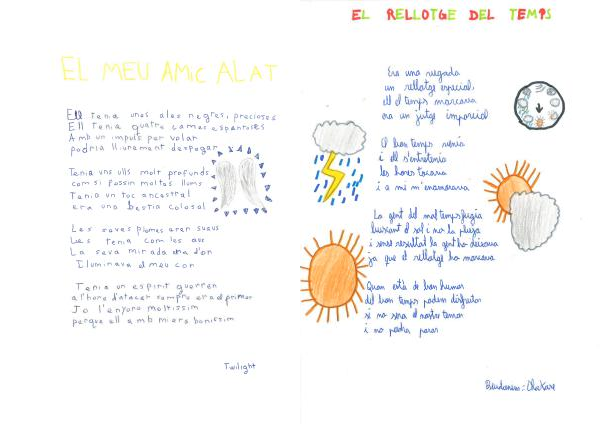 EL MEU AMIC ALAT
Ell tenia unes ales negres, precioses
Ell tenia quatre cames espantoses
Amb un impuls per volar
podria lliurement despegar
Tenia uns ulls molt profunds
com si fossin moltes llums
Tenia un toc ancestral
era una bestia colosal
Les seves plomes eren suaus
Les tenia com les aus
La seva mirada era d'on
Iluminava el meu con
Tenia un esperit guerrer
a l'hora d'atacar sempre era el primer
Jo l'enyoro moltissim
perque ell amb mi era bonissim
Twilight
EL RELLOTGE DEL TEMPS
Era una vegada
un rellotge especial,
ell el temps marcava
era un jutge imparcial
El bon temps venia
i ell s'entretenia
les hores tocava
i a mi m'enamorava
La gent del mal temps fugia
buscant el sol i no la pluja
i sense resultat la gent ho deixava
ja que el rellotge ho marcava
Quan està de bon humor
del bon temps podem disfrutar
si no serà el nostre temor
i no podrà parar
Pseudònim: